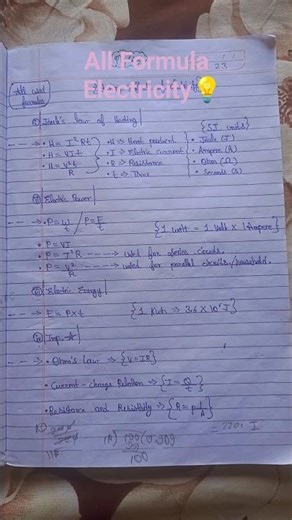 All Formula
Electricity💡
23
All used
formulas
① Joule's law of Heating
{SI units}
• H = I²Rt
• H = VIt
• H = V²t/R
• H → Heat produced
• I → Electric Current
• R → Resistance
• t → Time
• Joule (J)
• Ampere (A)
• Ohm (Ω)
• Seconds (S)
② Electric Power
• P = W/t / P = E/t
{1 watt = 1 Volt × 1 Ampere}
• P = VI
• P = I²R → used for series circuits.
• P = V²/R → used for parallel circuits/household.
③ Electric Energy
• E = P×t
{1 kwh ⇒ 3.6 × 10⁶ J}
Imp. ☆
• Ohm's Law ⇒ {V = IR}
• Current - charge Relation ⇒ {I = Q/t}
• Resistance and Resistivity ⇒ {R = ρl/A}
100